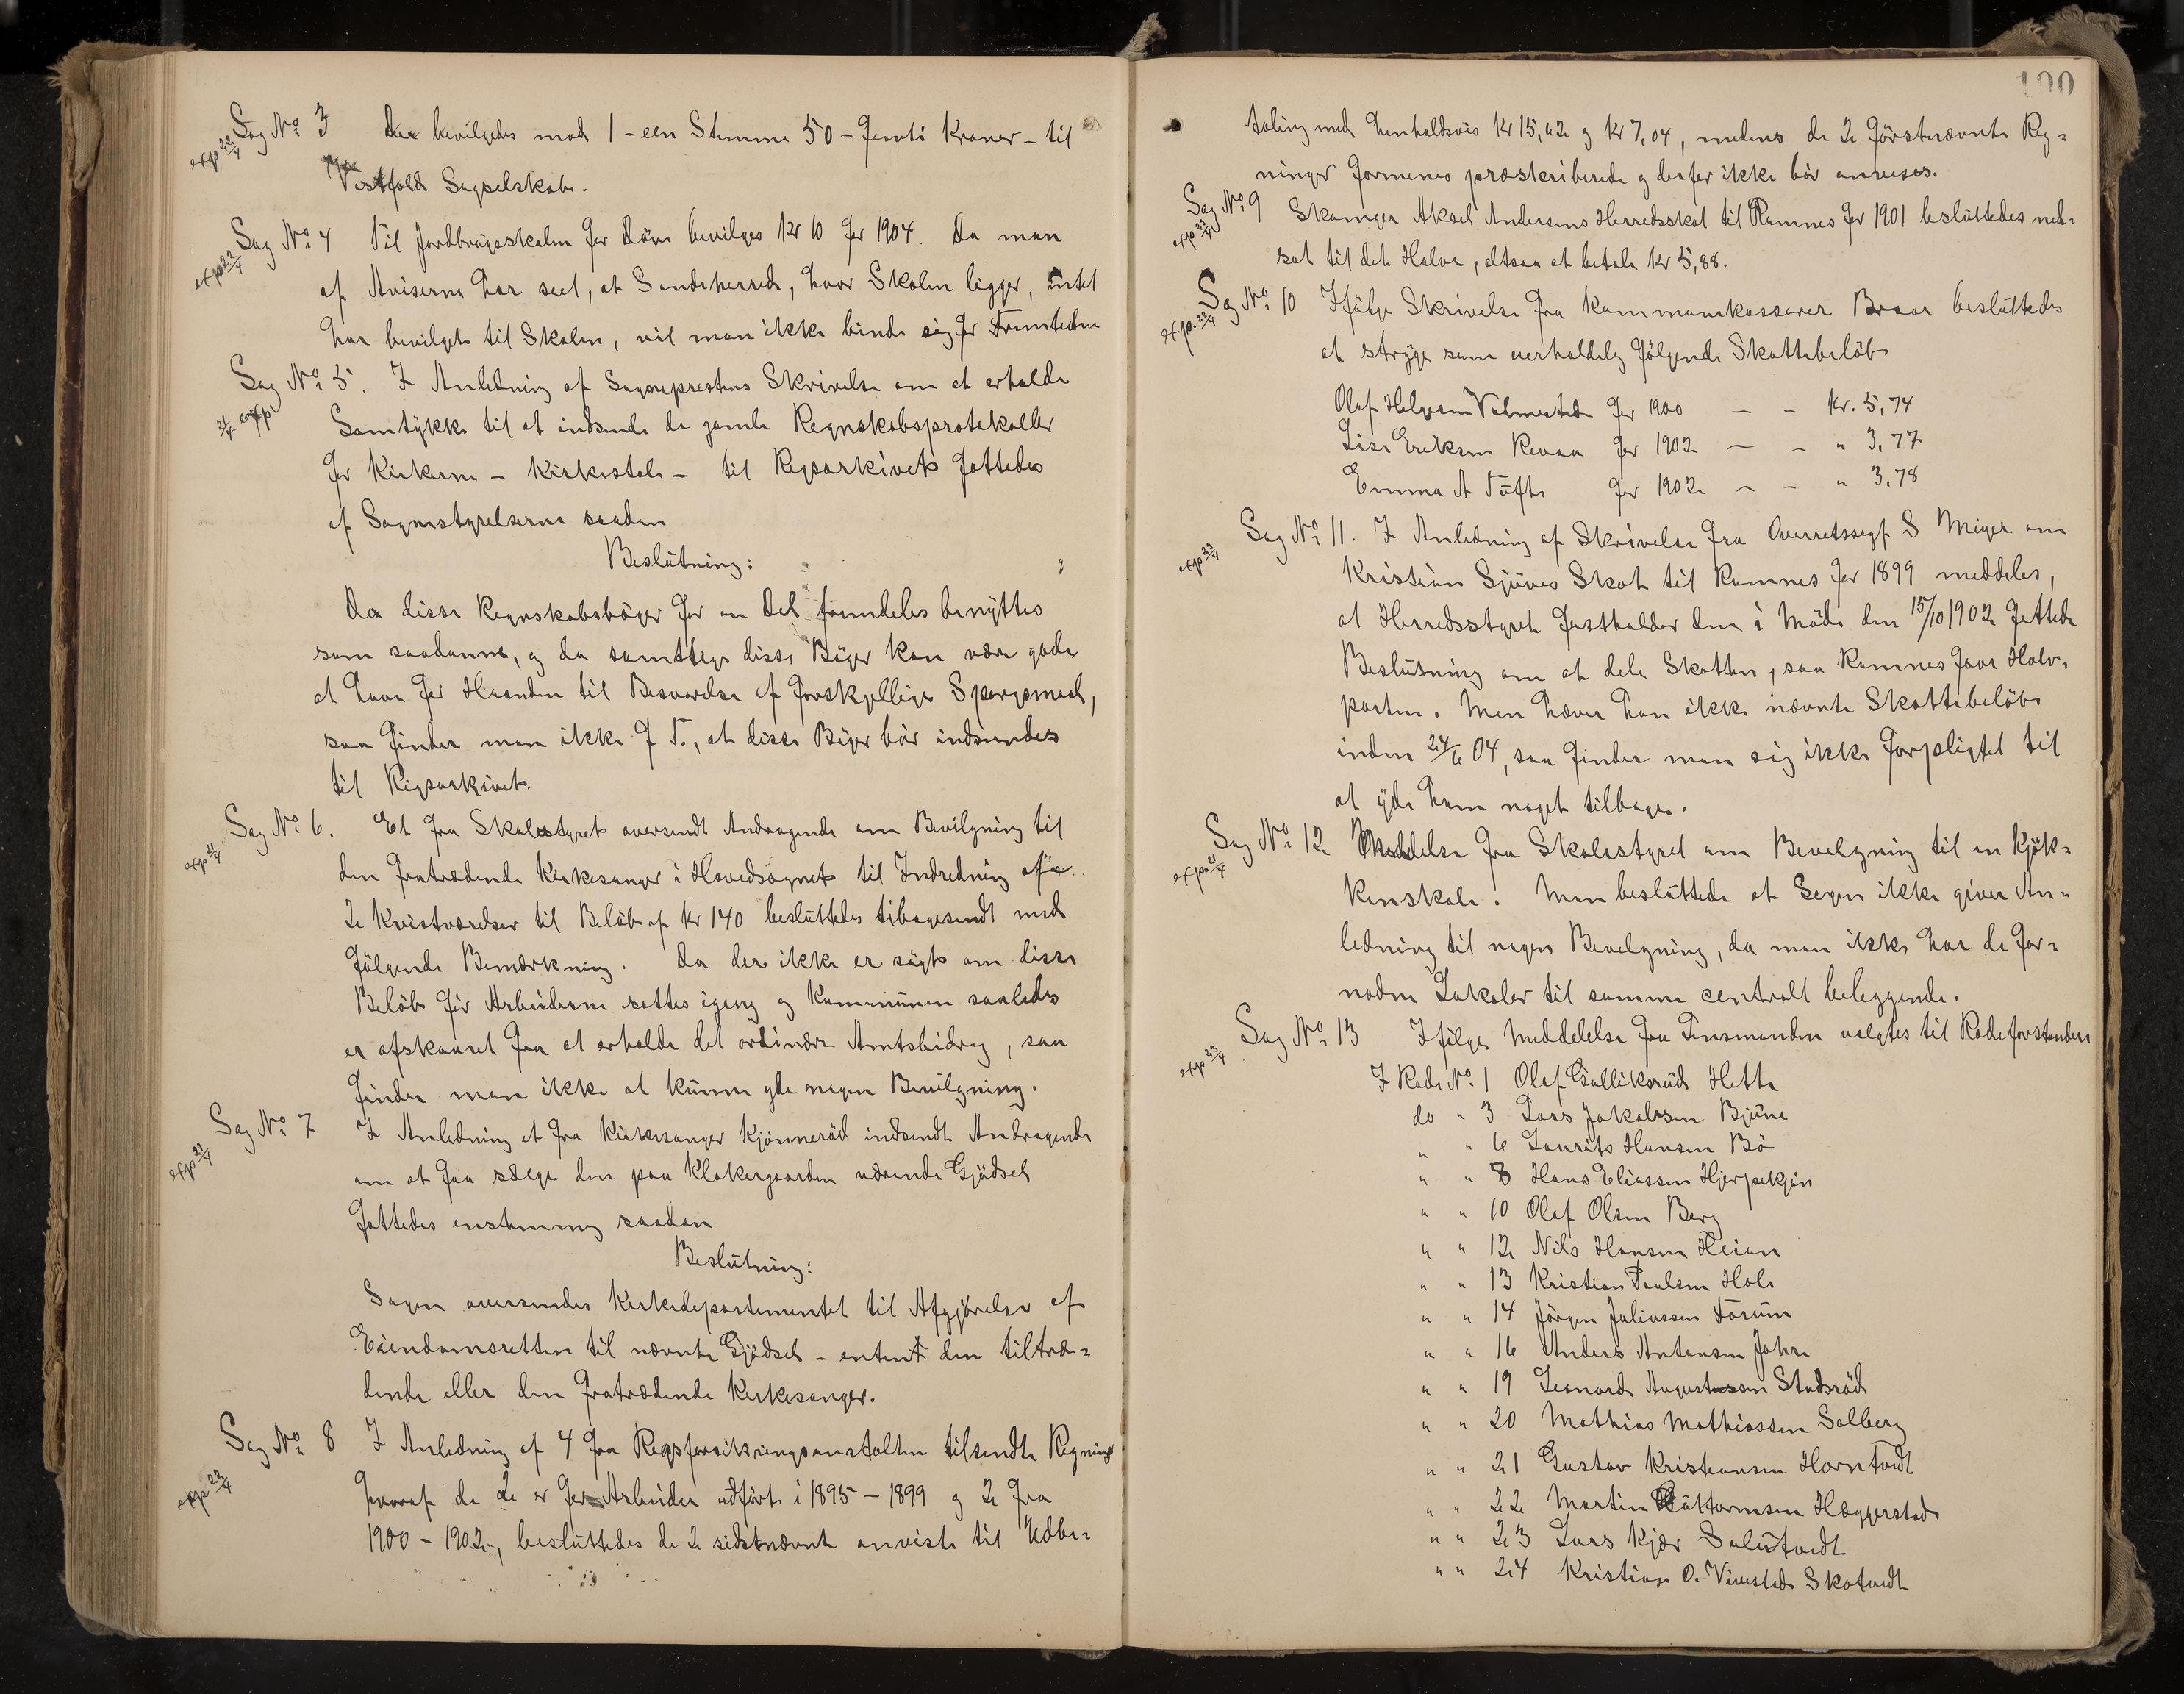 Sag No 3 Der bevilgedes mod 1 - een Stemme 50 - femti Kroner - til
exp 22/4
Vestfolds Sagselskab.
Sag No 4 Til Jordbrugsskolen for Døve bevilges Kr 10 for 1904. Da man
exp 22/4
af Aviserne har seet, at Sandeherred, hvor Skolen ligger, intet
har bevilget til Skolen, vil man ikke binde sig for Fremtiden
Sag No 5. I Anledning af Sogneprestens Skrivelse om at erholde
21/4 exp
Samtykke til at indsende de gamle Regnskabsprotokoller
for Kirkerne - Kirkestole - til Rigsarkivet fattedes
af Sognestyrelserne saadan
Beslutning:
Da disse Regnskabsbøger for en Del fremdeles benyttes
som saadanne, og da samtlige disse Bøger kan være gode
at have for Haanden til Besvarelse af forskjellige Spørgsmaal,
saa finder man ikke f. T., at disse Bøger bør indsendes
til Rigsarkivet.
Sag No 6. Et fra Skolestyret oversendt Andragende om Bevilgning til
exp 21/4
den fratrædende Kirkesanger i Hovedsognet til Indredning af
2 Kvistværelser til Beløb af Kr 140 besluttedes tilbagesendt med
følgende Bemærkning. Da der ikke er søgt om disse
Beløb før Arbeiderne sattes igang og Kommunen saaledes
er afskaaret fra at erholde det ordinære Amtsbidrag, saa
finder man ikke at kunne yde nogen Bevilgning.
Sag No 7 I Anledning et fra Kirkesanger Kjønnerød indsendt Andragende
exp 21/4
om at faa sælge den paa Klokkergaarden værende Gjødsel
fattedes enstemmig saadan
Beslutning:
Sagen oversendes Kirkedepartementet til Afgjørelse af
Eiendomsretten til nævnte Gjødsel - enten den tiltræ=
dende eller den fratrædende Kirkesanger.
Sag No 8 I Anledning af 4 fra Rigsforsikringsanstalten tilsendte Regninger
exp 22/4
hvoraf de 2 er for Arbeider udført i 1895 - 1899 og 2 fra
1900 - 1902, besluttedes de 2 sidstnævnte anviste til Udbe=
100
taling med henholdsvis Kr 15,62 og Kr 7,04, medens de 2 førstnævnte Reg=
ninger formenes præskriberede og derfor ikke bør anvises.
Sag No 9 Skomager Aksel Andersens Herredsskat til Ramnes for 1901 besluttedes ned=
exp 22/4
sat til det Halve, altsaa at betale Kr 5,88.
Sag No 10 Ifølge Skrivelse fra Kommunekasserer Braar besluttedes
exp. 22/4
at stryge som uerholdelig følgende Skattebeløb
Olaf Helgesen Valmestad for 1900 - - Kr. 5,74
Lise Eriksen Revaa for 1902 - - " 3,77
Emma A Tufte for 1902 - - " 3,78
Sag No 11. I Anledning af Skrivelse fra Overretssagf. S Meyer om
exp 23/4
Kristian Sjuves Skat til Ramnes for 1899 meddeles,
at Herredsstyret fastholder den i Møde den 15/10 1902 fattede
Beslutning om at dele Skatten, saa Ramnes faar Halv=
parten. Men hæver han ikke nævnte Skattebeløb
inden 24/6 04, saa finder man sig ikke forpligtet til
at yde ham noget tilbage.
Sag No 12 Meddelelse fra Skolestyret om Bevilgning til en Kjøk=
exp 21/4
kenskole. Man besluttede at Sagen ikke giver An=
ledning til nogen Bevilgning, da man ikke har de for=
nødne Lokaler til samme centralt beliggende.
Sag No 13 Ifølge Meddelelse fra Lensmanden valgtes til Rodeforstandere
exp 23/4
I Rode No 1 Olaf Gulliksrud Hette
do " 3 Lars Jakobsen Bjune
" " 6 Laurits Hansen Bø
" " 8 Hans Eliassen Hjerpekjøn
" " 10 Olaf Olsen Berg
" " 12 Nils Hansen Heian
" " 13 Kristian Paulsen Hole
" " 14 Jørgen Juliussen Forum
" " 16 Anders Antonsen Jahre
" " 19 Leonard Augustussen Stadsrød
" " 20 Mathias Mathiassen Solberg
" " 21 Gustav Kristiansen Horntvedt
" " 22 Martin Guttormsen Hæggerstad
" " 23 Lars Kjær Sulutvedt
" " 24 Kristian O. Vivestad Skotvedt